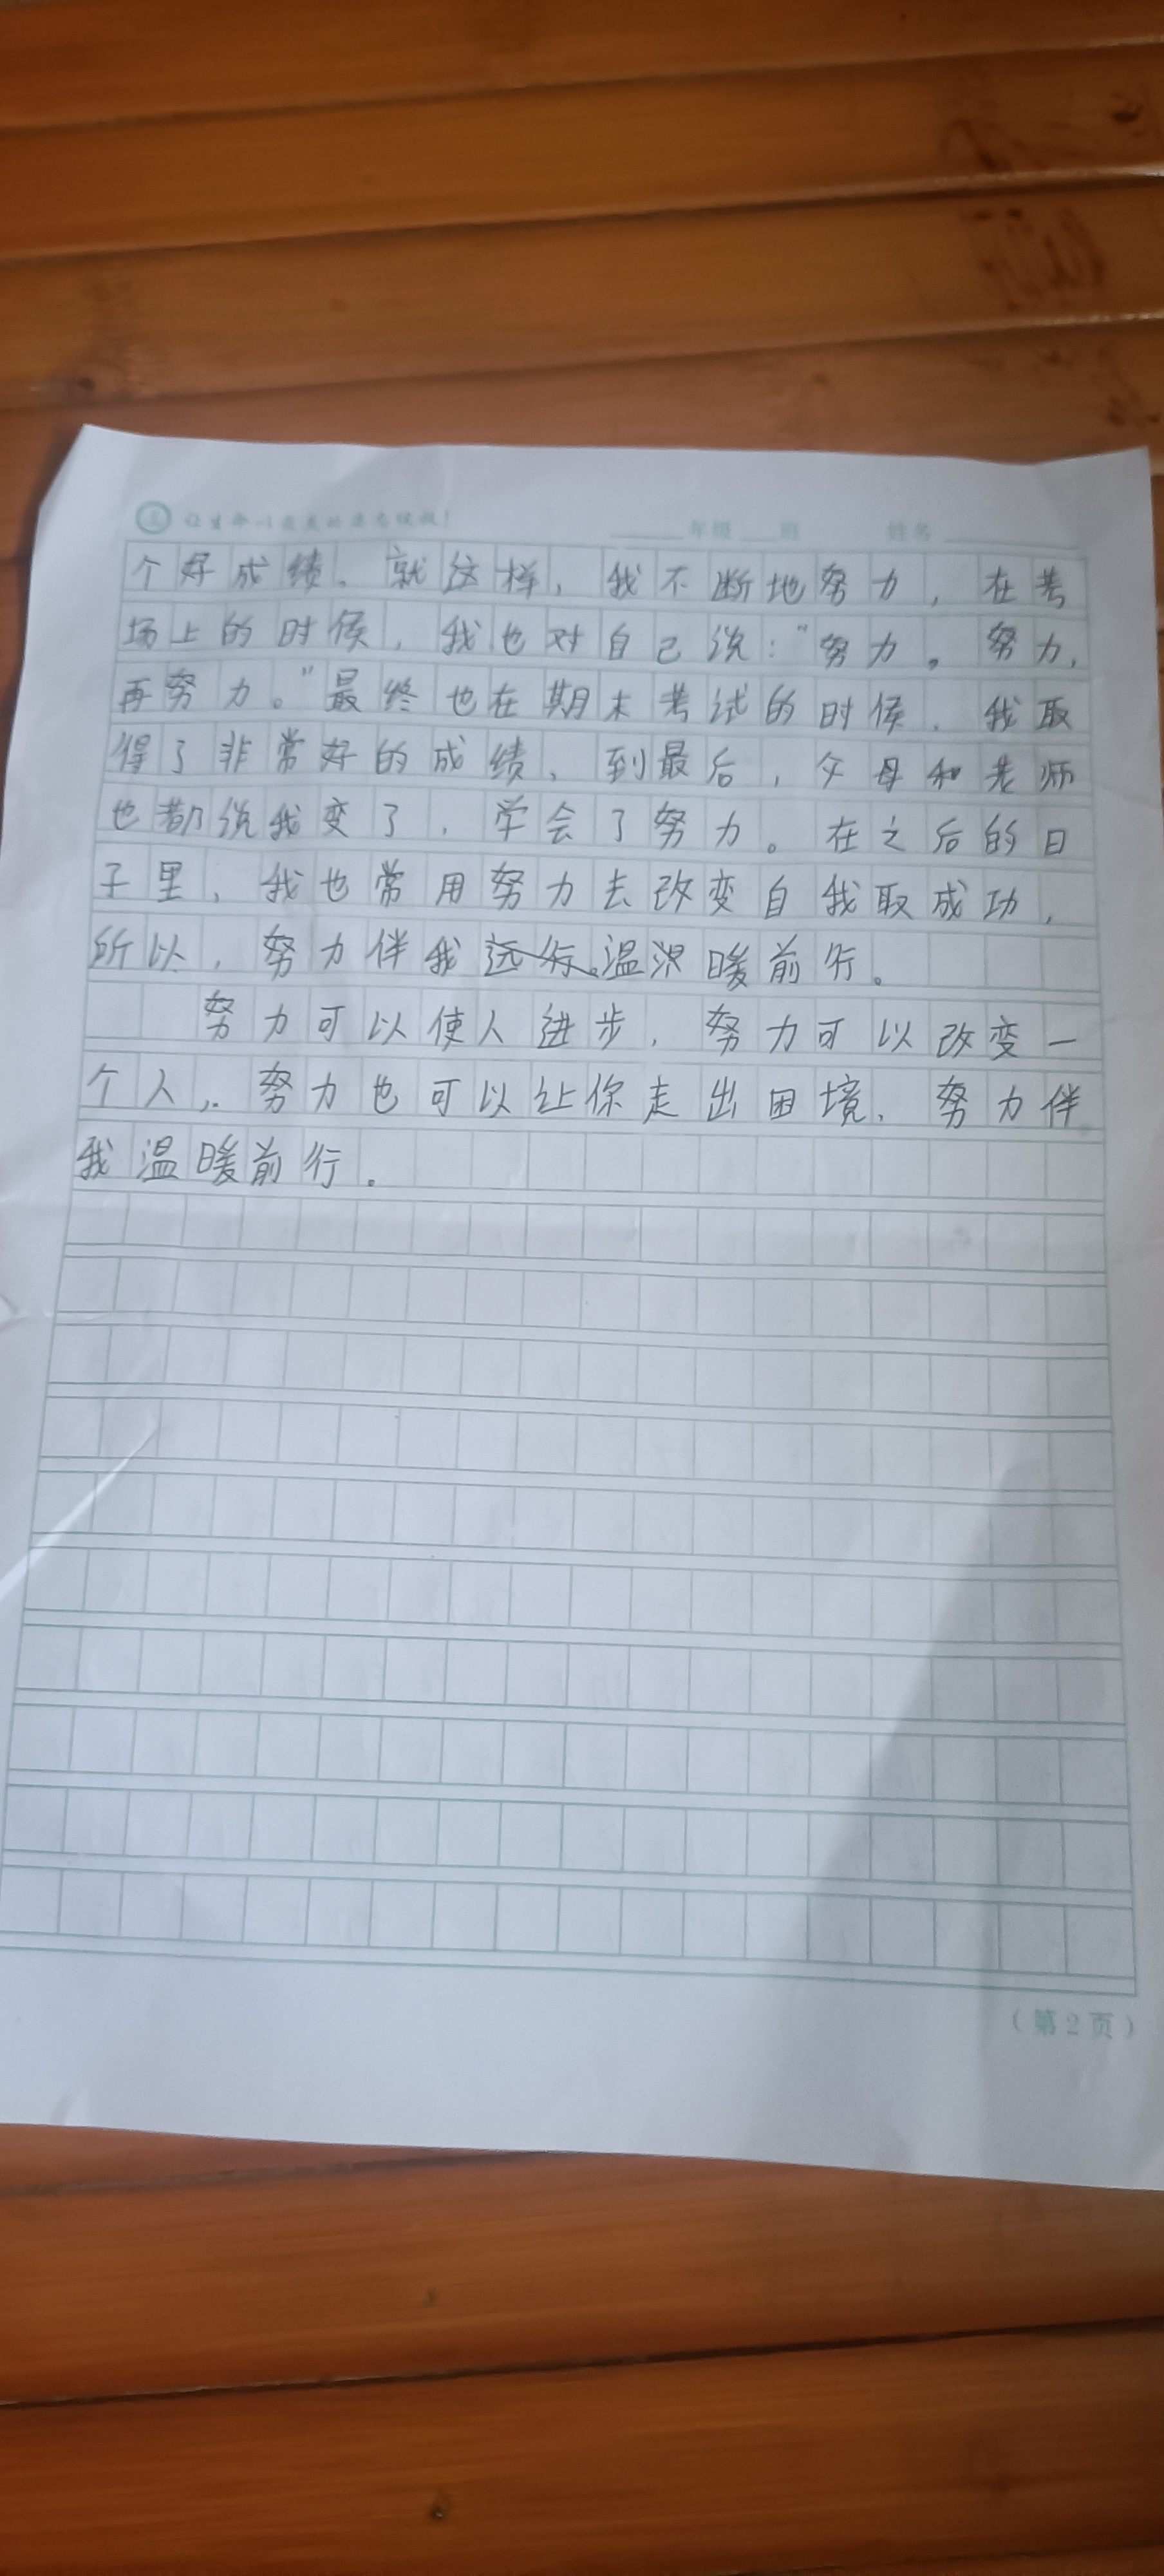 让生命以最美的姿态绽放！ ______年级 ___班 姓名 ________
个好成绩。就这样，我不断地努力，在考
场上的时候，我也对自己说：“努力。努力，
再努力。”最终也在期末考试的时候，我取
得了非常好的成绩，到最后，父母和老师
也都说我变了，学会了努力。在之后的日
子里，我也常用努力去改变自我取成功，
所以，努力伴我远行。温暖前行。
努力可以使人进步，努力可以改变一
个人，努力也可以让你走出困境，努力伴
我温暖前行。
（第2页）